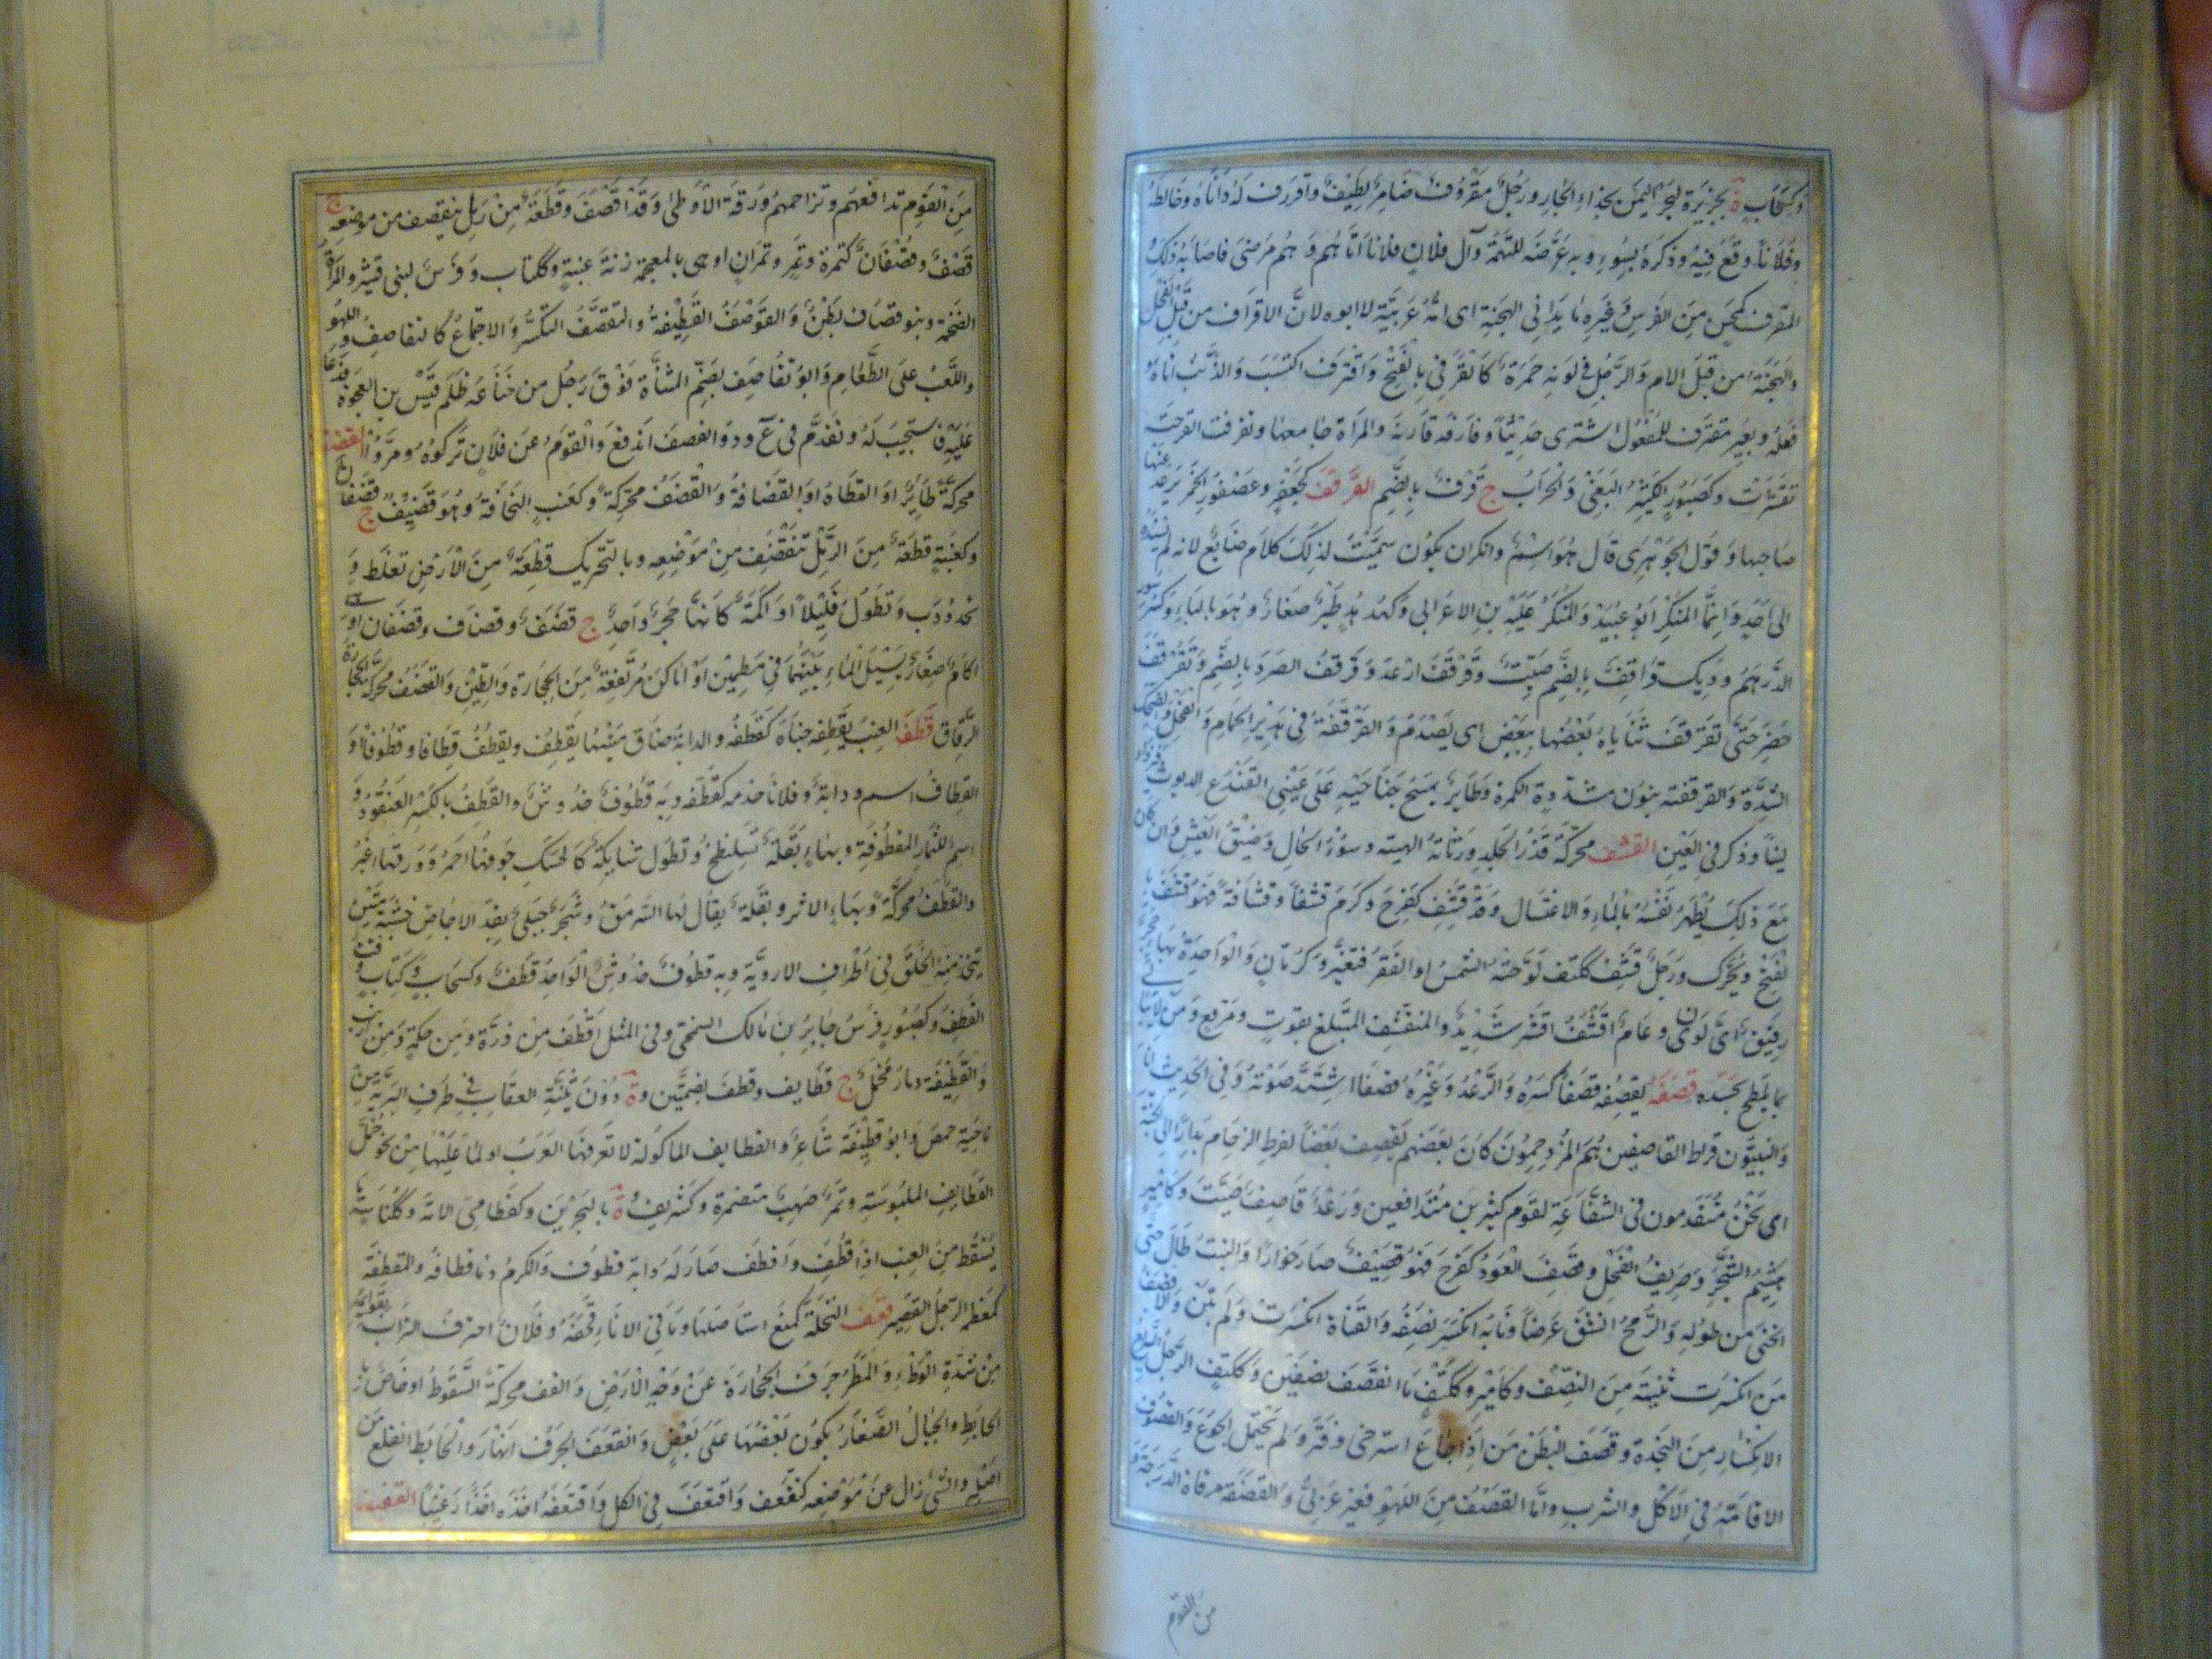 وكسحاب ة بجزيرة لبحر اليمن بحذاء الجار ورجل مقروف ضامر لطيف واقرف له داناه وخالطه
وفلانا وقع فيه وذكره بسوء وبه عرضه للتهمة وآل فلان فلانا اتاهم وهم مرضى فاصابه ذلك
المقرف كمحسن من الفرس وغيره ما يداني الهجنة اى امه عربية لا ابوه لان الاقراف من قبل الفحل
والهجنة من قبل الام والرجل فى لونه حمرة كالقرفي بالفتح واقترف اكتسب والذنب اتاه و
فعله وبعير مقترف للمفعول اشترى حديثا وقارفه قاربه والمراة جامعها وتقرفت القرحة
تقشرت وكصبور الكثير البغي والجراب ج قرف بالضم القرقف كجعفر وعصفور الخمر يرعد عنها
صاحبها وقول الجوهرى قال هو اسم وانكر ان يكون سميت لذلك كلام ضايع لانه لم يسنده
الى احد وانما المنكر ابو عبيد والمنكر عليه بن الاعرابى وكهدهد طير صغار وهو بالباء وكسرسور
الدرهم وديك قراقف بالضم صيت وقرقف ارعد وقرقف الصرد بالضم وتقرقف
خصر حتى تقرقف ثناياه بعضها ببعض اى يصدم والقرقفة فى هدير الحمام والفحل والضحك
الشدة والقرقفنة بنون مشددة الكمرة وطاير يمسح جناحيه على عينى القنذع الديوث فيزداد
لينا وذكر فى العين القشف محركة قذر الجلد ورثاثة الهيئة وسوء الحال وضيق العيش وان كان
مع ذلك يطهر نفسه بالماء والاغتسال وقد قشف كفرح وكرم قشفا وقشافة فهو قشف
بالفتح ويحرك ورجل قشف ككتف لوحته الشمس او الفقر فتغير وكرمان والواحدة بهاء حجر
رقيق اى لون وعام اقشف اقشر شديد والمتقشف المتبلغ بقوت ومرقع ومن لا يبالى
بما لطخ بجسده قصفه يقصفه قصفا كسره والرعد وغيره قصفا اشتد صوته وفى الحديث انا
والنبيون فراط القاصفين هم المزدحمون كان بعضهم يقصف بعضا لفرط الزحام بدارا الى الجنة
اى نحن متقدمون فى الشفاعة لقوم كثيرين متدافعين ورعد قاصف صيت وكامير
هشيم الشجر وصريف الفحل وقصف العود كفرح فهو قصيف صار خوارا والنبت طال حتى
انحنى من طوله والرمح انشق عرضا ونابه انكسر نصفه والقناة انكسرت ولم تبن والاقصف
من انكسرت ثنيته من النصف وكامير وككتف ما انقصف نصفين وككتف الرجل السريع
الانكسار من النجدة وقصف البطن من اذا جاع استرخى وفتر ولم يحتمل الجوع والقصوف
الاقامة فى الاكل والشرب واما القصف من اللهو فغير عربى والقصفة مرقاة الدرجة و
من القوم
من القوم تدافعهم وتزاحمهم ورقة الاوطى وقد اقصف وقطعة من رمل ينقصف من موضعه ج
قصف وقصفان كتمرة وتمر وتمران او هى بالمعجمة زنة عنبة وككتاب وفرس لبنى قشير والمراة
الضخمة وبنو قصاف بطن والقوصف القطيفة والتقصف التكسر والاجتماع كالتقاصف واللهو
واللعب على الطعام وابو تقاصف بضم المثناة فوق رجل من خناعة ظلم قيس بن العجوة فدعا
عليه فاستجيب له وتقدم فى ع ود وانقصف اندفع والقوم عن فلان تركوه ومروا القضفة
محركة طاير او القطاة او القضافة والقضف محركة وكعنب النحافة وهو قضيف ج قضفان
وكعنبة قطعة من الرمل تنقضف من موضعه وبالتحريك قطعة من الارض تغلظ و
تحدودب وتطول قليلا او اكمة كانها حجر واحد ج قضف وقضاف وقضفان او هى
اكام صغار يسيل الماء بينهما فى مطمئن او اماكن مرتفعة من الحجارة والطين والقضف محركة الحجارة
الرقاق قطف العنب يقطفه جناه كقطفه والدابة ضاق مشيها يقطف ويقطف قطافا وقطوفا او
القطاف اسم ودابة وفلانا خدشه كقطفه وبه قطوف خدوش والقطف بالكسر العنقود و
اسم للثمار المقطوفة وبهاء بقلة تسلنطح وتطول شايكة كالحسك جوفها احمر وورقها اغبر
والقطف محركة وبهاء الاثر وبقلة يقال لها السرمق وشجر جبلى بقد الاجاص خشبه متين
يتخذ منه الحلق فى اطراف الاروية وبه قطوف خدوش الواحد قطف وكسحاب وكتاب وقت
القطف وكصبور فرس جابر بن مالك السمخى وفى المثل اقطف من ذرة ومن حلمة ومن ارنب
والقطيفة دثار مخمل ج قطايف وقطف بضمتين وة دون ثنية العقاب فى طرف البرية من
ناحية حمص وابو قطيفة شاعر والقطايف الماكولة لا تعرفها العرب او لما عليها من نحو خمل
القطايف الملبوسة وتمر صهب متضمرة وكشريف ة بالبحرين وكقطام هى الامة وككناسة ما
يسقط من العنب اذا قطف واقطف صار له دابة قطوف والكرم دنا قطافه والمقطفة
كمعظم الرجل القصير قعف النخلة كمنع استاصلها وما فى الاناء قحفه وفلان اجترف التراب بقوايمه
من شدة الوطء والمطر جرف الحجارة عن وجه الارض والقعف محركة السقوط او خاص بـ
الحايط والجبال الصغار يكون بعضها على بعض وانقعف الجرف انهار والحايط انقلع من
اصله والشى زال عن موضعه كتقعف واقتعف فى الكل واقتعفه اخذه اخذا رغيبا القفيف